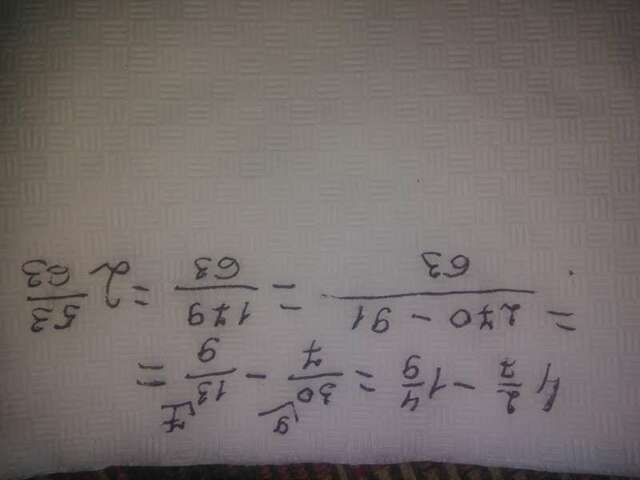 4 2/7 - 1 4/9 = 30/7 - 13/9 =
= 270 - 91 / 63 = 179/63 = 2 53/63